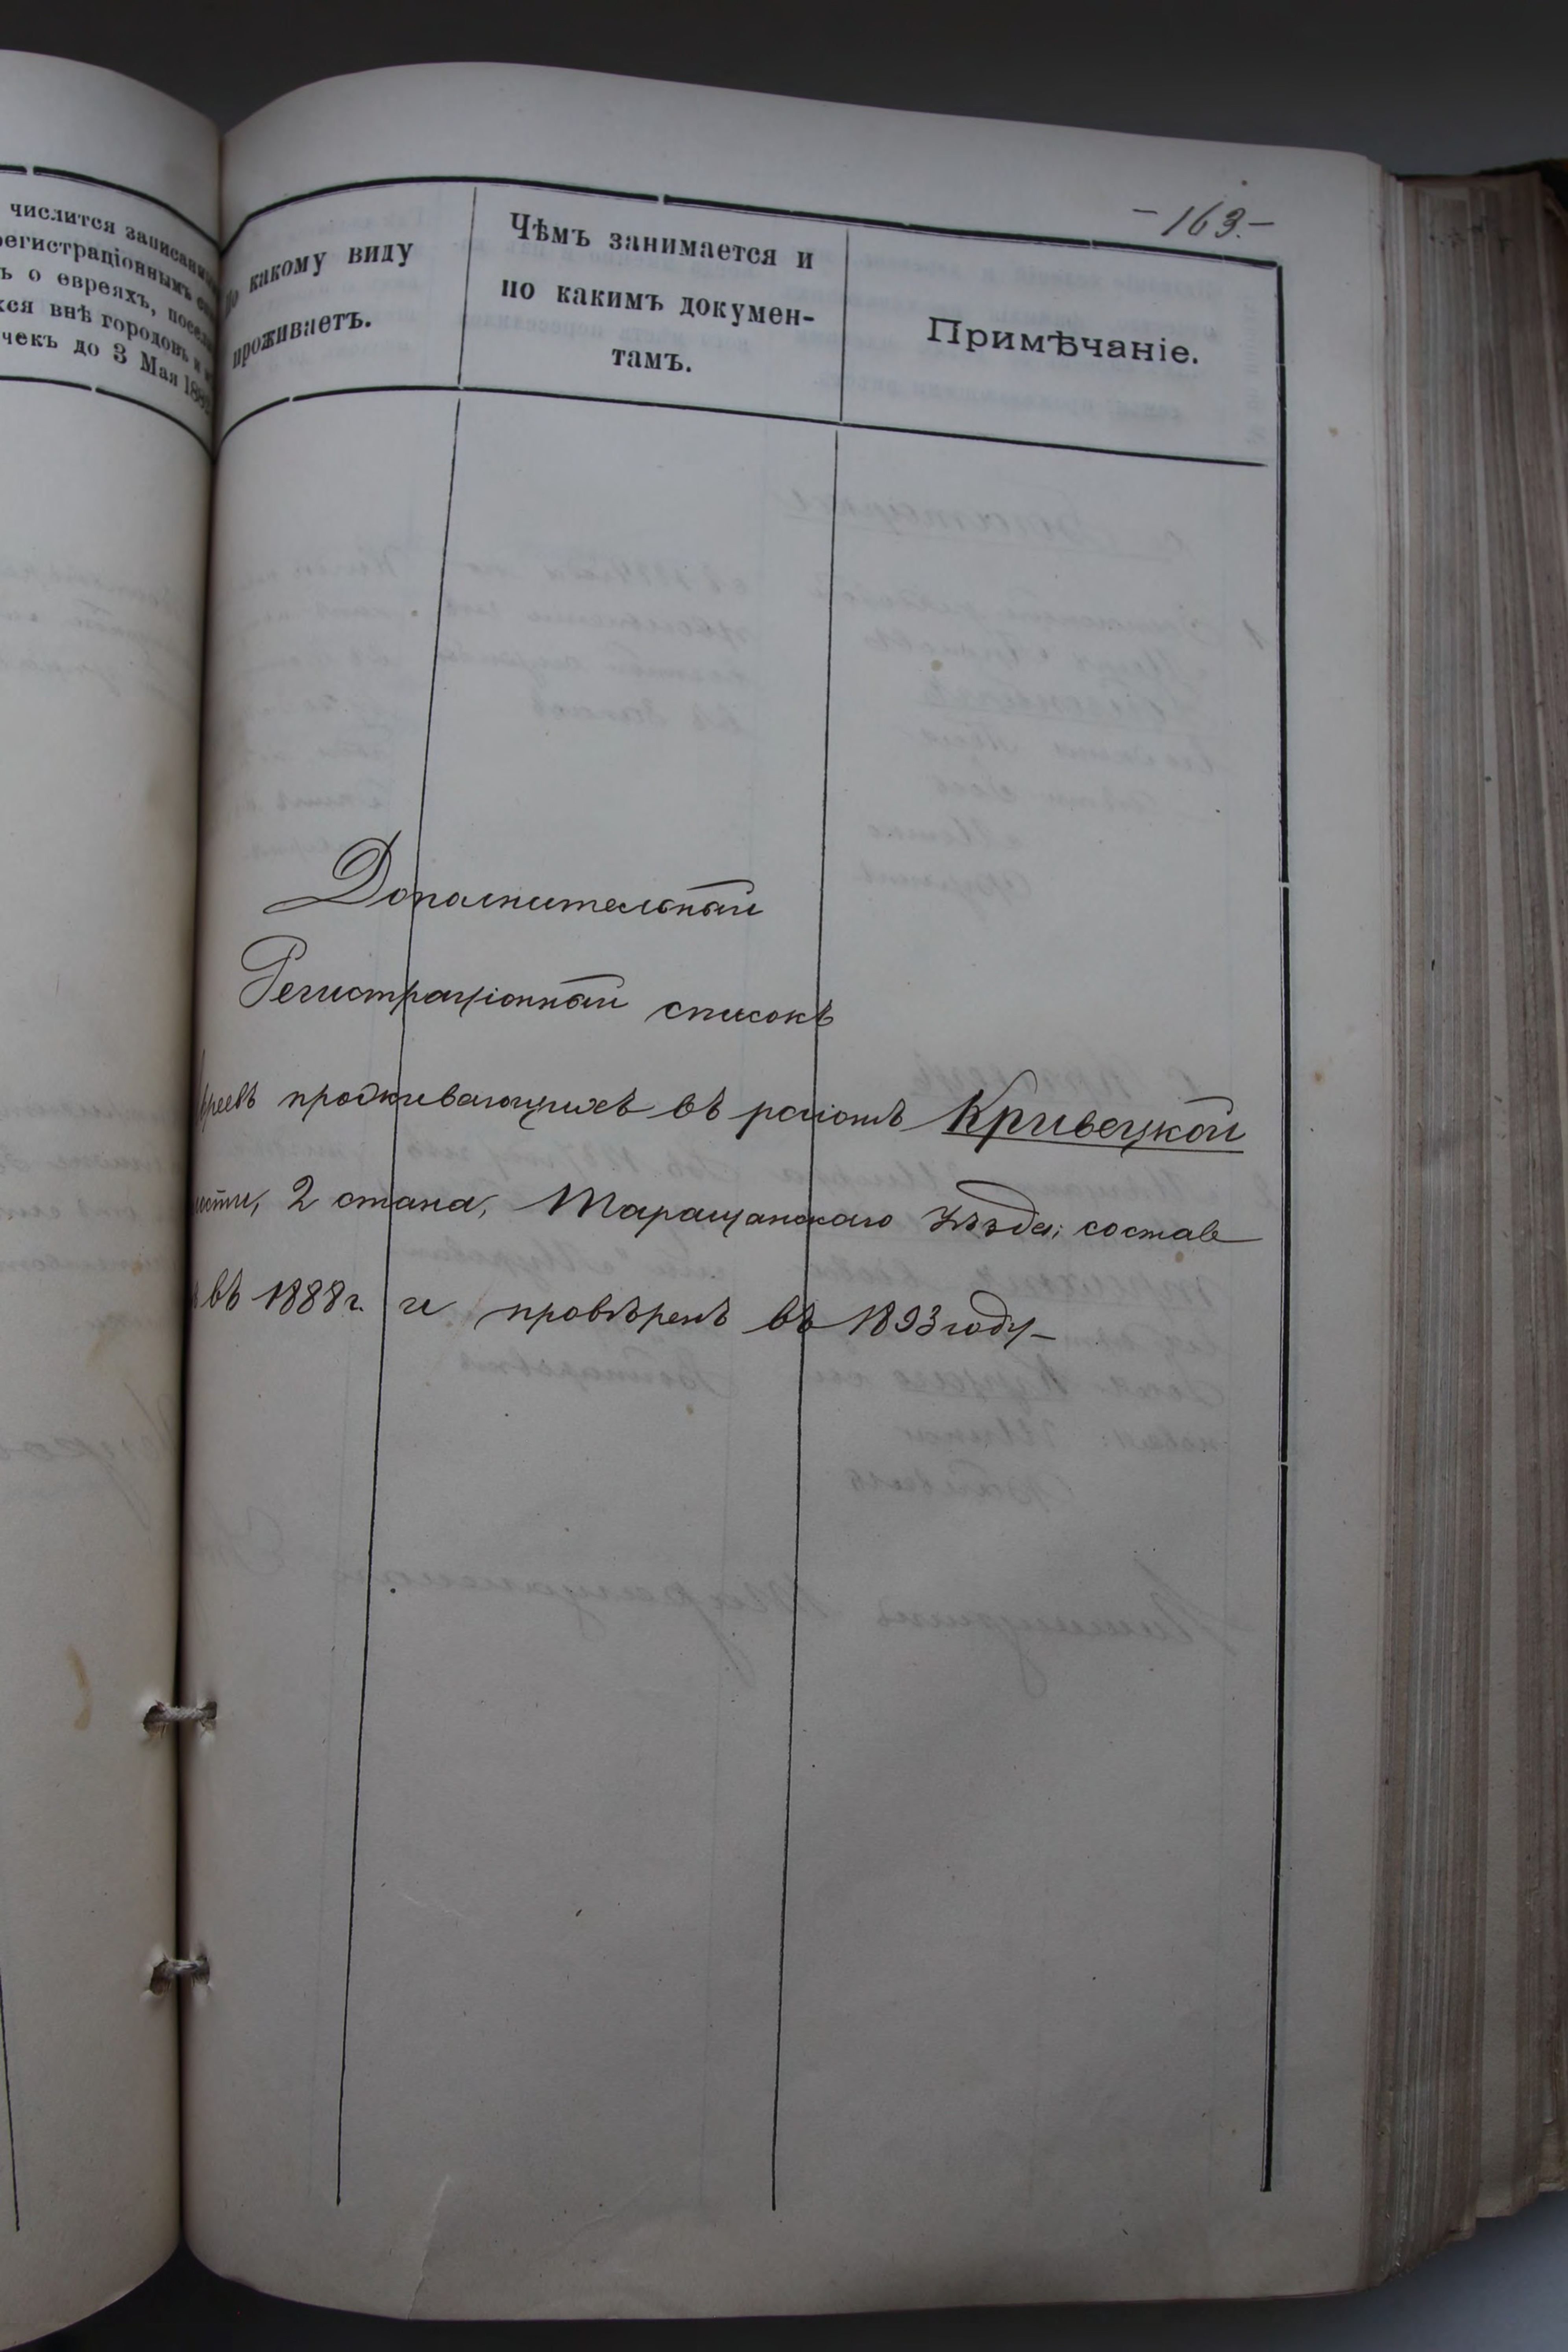 числится записанн
регистраціоннымъ
ъ о евреяхъ, посел
хся внѣ городовъ и
чекъ до 3 Мая 188
какому виду
проживаетъ.
Чѣмъ занимается и
по какимъ докумен-
тамъ.
Примѣчаніе.
-163.-
Дополнительный
Регистраціонный списокъ
вреевъ проживающихъ въ районѣ Кривецкой
лости, 2 стана, Таращанскаго уѣзда; составле
въ 1888 г. и провѣренъ въ 1893 году-